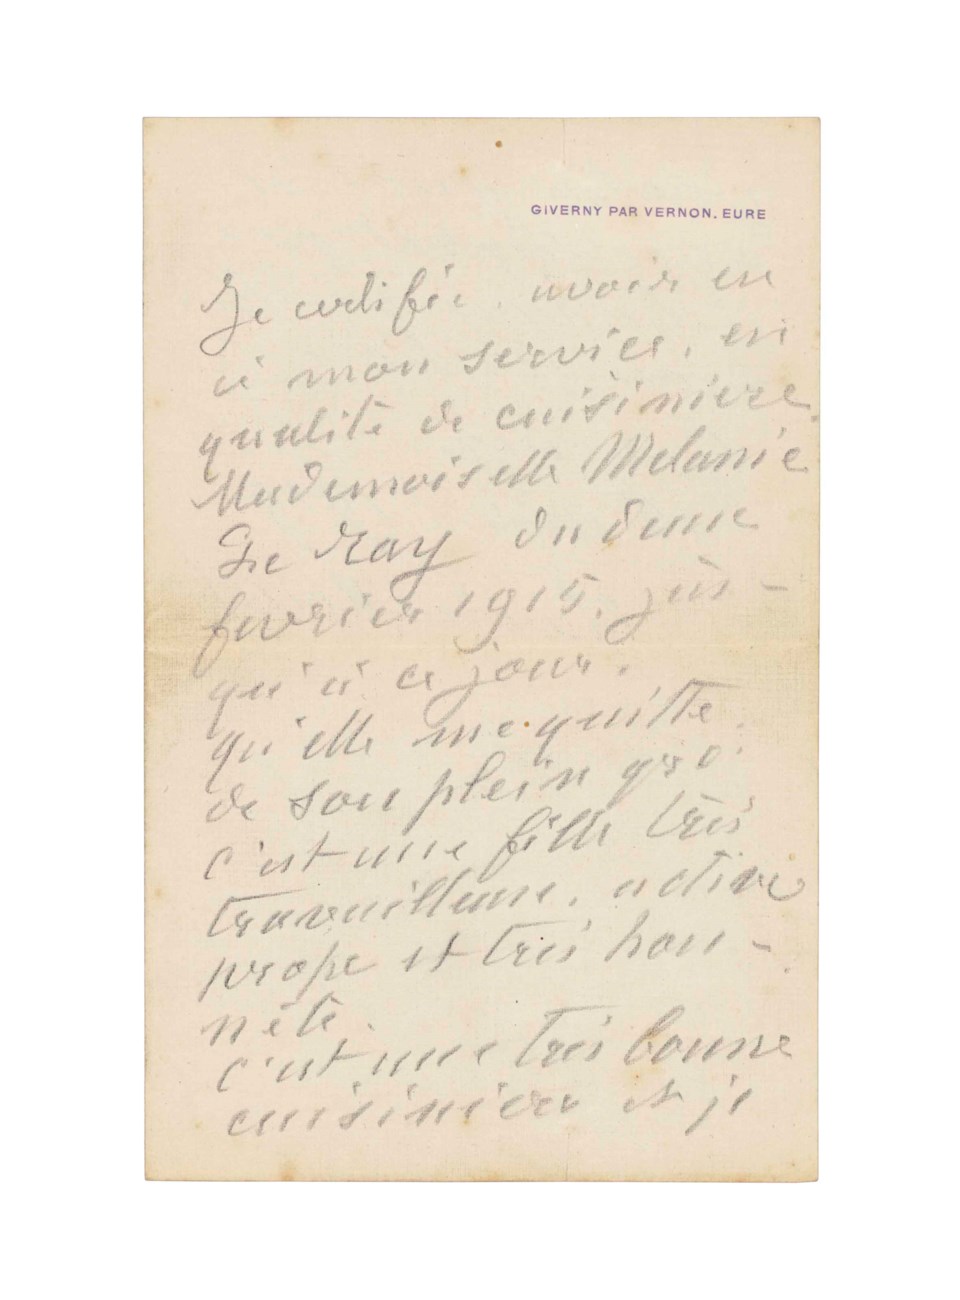 GIVERNY PAR VERNON. EURE
Je certifie avoir eu
à mon service, en
qualité de cuisiniere
Mademoiselle Melanie
Le Ray du
fevrier 1915. jus-
qu'à ce jour.
qu'elle me quitte
de son plein gré.
c'est une fille très
travailleuse. active
propre et très hon-
nête.
c'est une très bonne
cuisiniere et je